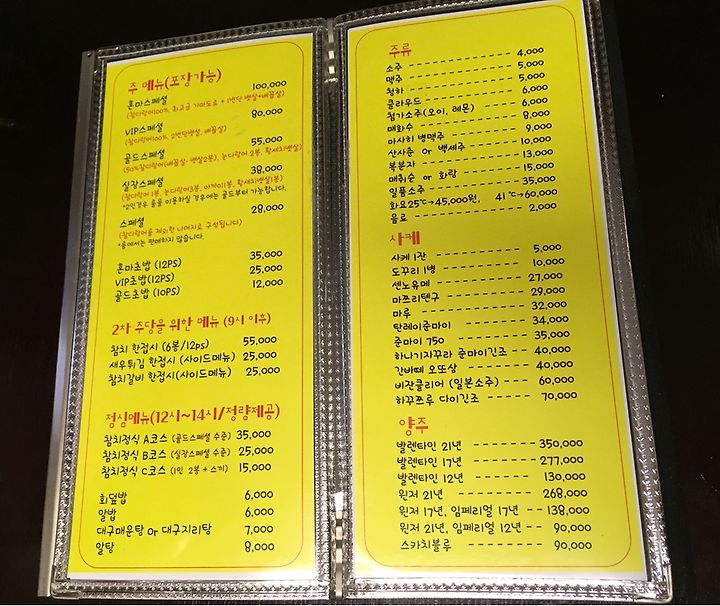 주 메뉴(포장가능)
혼마스페셜 100,000
(참다랑어100%, 최고급 가마도로 + 1번단 뱃살+배꼽살)
VIP스페셜 80,000
(참다랑어100%, 2번단뱃살, 배꼽살)
골드스페셜 55,000
(50%참다랑어(배꼽살· 뱃살2봉), 눈다랑어 2봉, 황새치뱃살)
실장스페셜 38,000
(참다랑어 1봉, 눈다랑어3봉, 아까미1봉, 황새치뱃살1봉)
*2인경우 룸을 이용하실 경우에는 골드부터 가능합니다.
스페셜 28,000
(참다랑어를 제외한 나머지로 구성됩니다)
*룸에서는 판매하지 않습니다.
혼마초밥 (12PS) 35,000
VIP초밥(12PS) 25,000
골드초밥 (10PS) 12,000
2차 주당을 위한 메뉴 (9시 이후)
참치 한접시 (6봉/12ps) 55,000
새우튀김 한접시 (사이드메뉴) 25,000
참치갈비 한접시(사이드메뉴) 25,000
점심메뉴(12시~14시/정량제공)
참치정식 A코스 (골드스페셜 수준) 35,000
참치정식 B코스 (실장스페셜 수준) 25,000
참치정식 C코스 (1인 2봉 + 스끼) 15,000
회덮밥 6,000
알밥 6,000
대구매운탕 or 대구지리탕 7,000
알탕 8,000
주류
소주 4,000
맥주 5,000
청하 5,000
클라우드 6,000
첨가소주(오이, 레몬) 6,000
매화수 8,000
아사히 병맥주 9,000
산사춘 or 백세주 10,000
복분자 13,000
매취순 or 화랑 15,000
일품소주 35,000
화요25℃→45,000원, 41℃→60,000
음료 2,000
사케
사케 1잔 5,000
도꾸리 1병 10,000
센노유메 27,000
마쯔리텐구 29,000
마루 32,000
탄레이준마이 34,000
준마이 750 35,000
하나기자꾸라 준마이긴조 40,000
간바떼 오또상 40,000
비잔클리어 (일본소주) 60,000
하꾸쯔루 다이긴조 70,000
양주
발렌타인 21년 350,000
발렌타인 17년 277,000
발렌타인 12년 130,000
윈저 21년 268,000
윈저 17년, 임페리얼 17년 138,000
윈저 21년, 임페리얼 12년 90,000
스카치블루 90,000